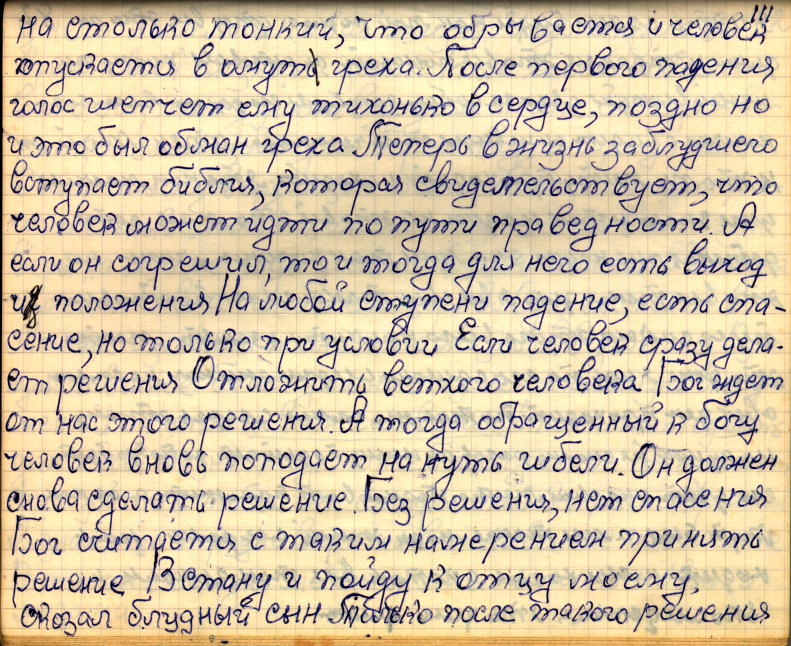 111
на столько тонкий, что обрывается и человек
опускается в омут греха. После первого падения
голос шепчет ему тихонько в сердце, поздно но
и это был обман греха. Теперь в жизнь заблудшего
вступает библия, которая свидетельствует, что
человек может идти по пути праведности. А
если он согрешил, то и тогда для него есть выход
из положения На любой ступени падение, есть спа-
сение, но только при условии Если человек сразу дела-
ет решения Отложить ветхого человека Бог ждет
от нас этого решения. А тогда обращенный к богу
человек вновь поподает на путь гибели. Он должен
снова сделать решение. Без решения, нет спасения
Бог считается с таким намерением принять
решение Встану и пойду к отцу моему,
сказал блудный сын Только после такого решения